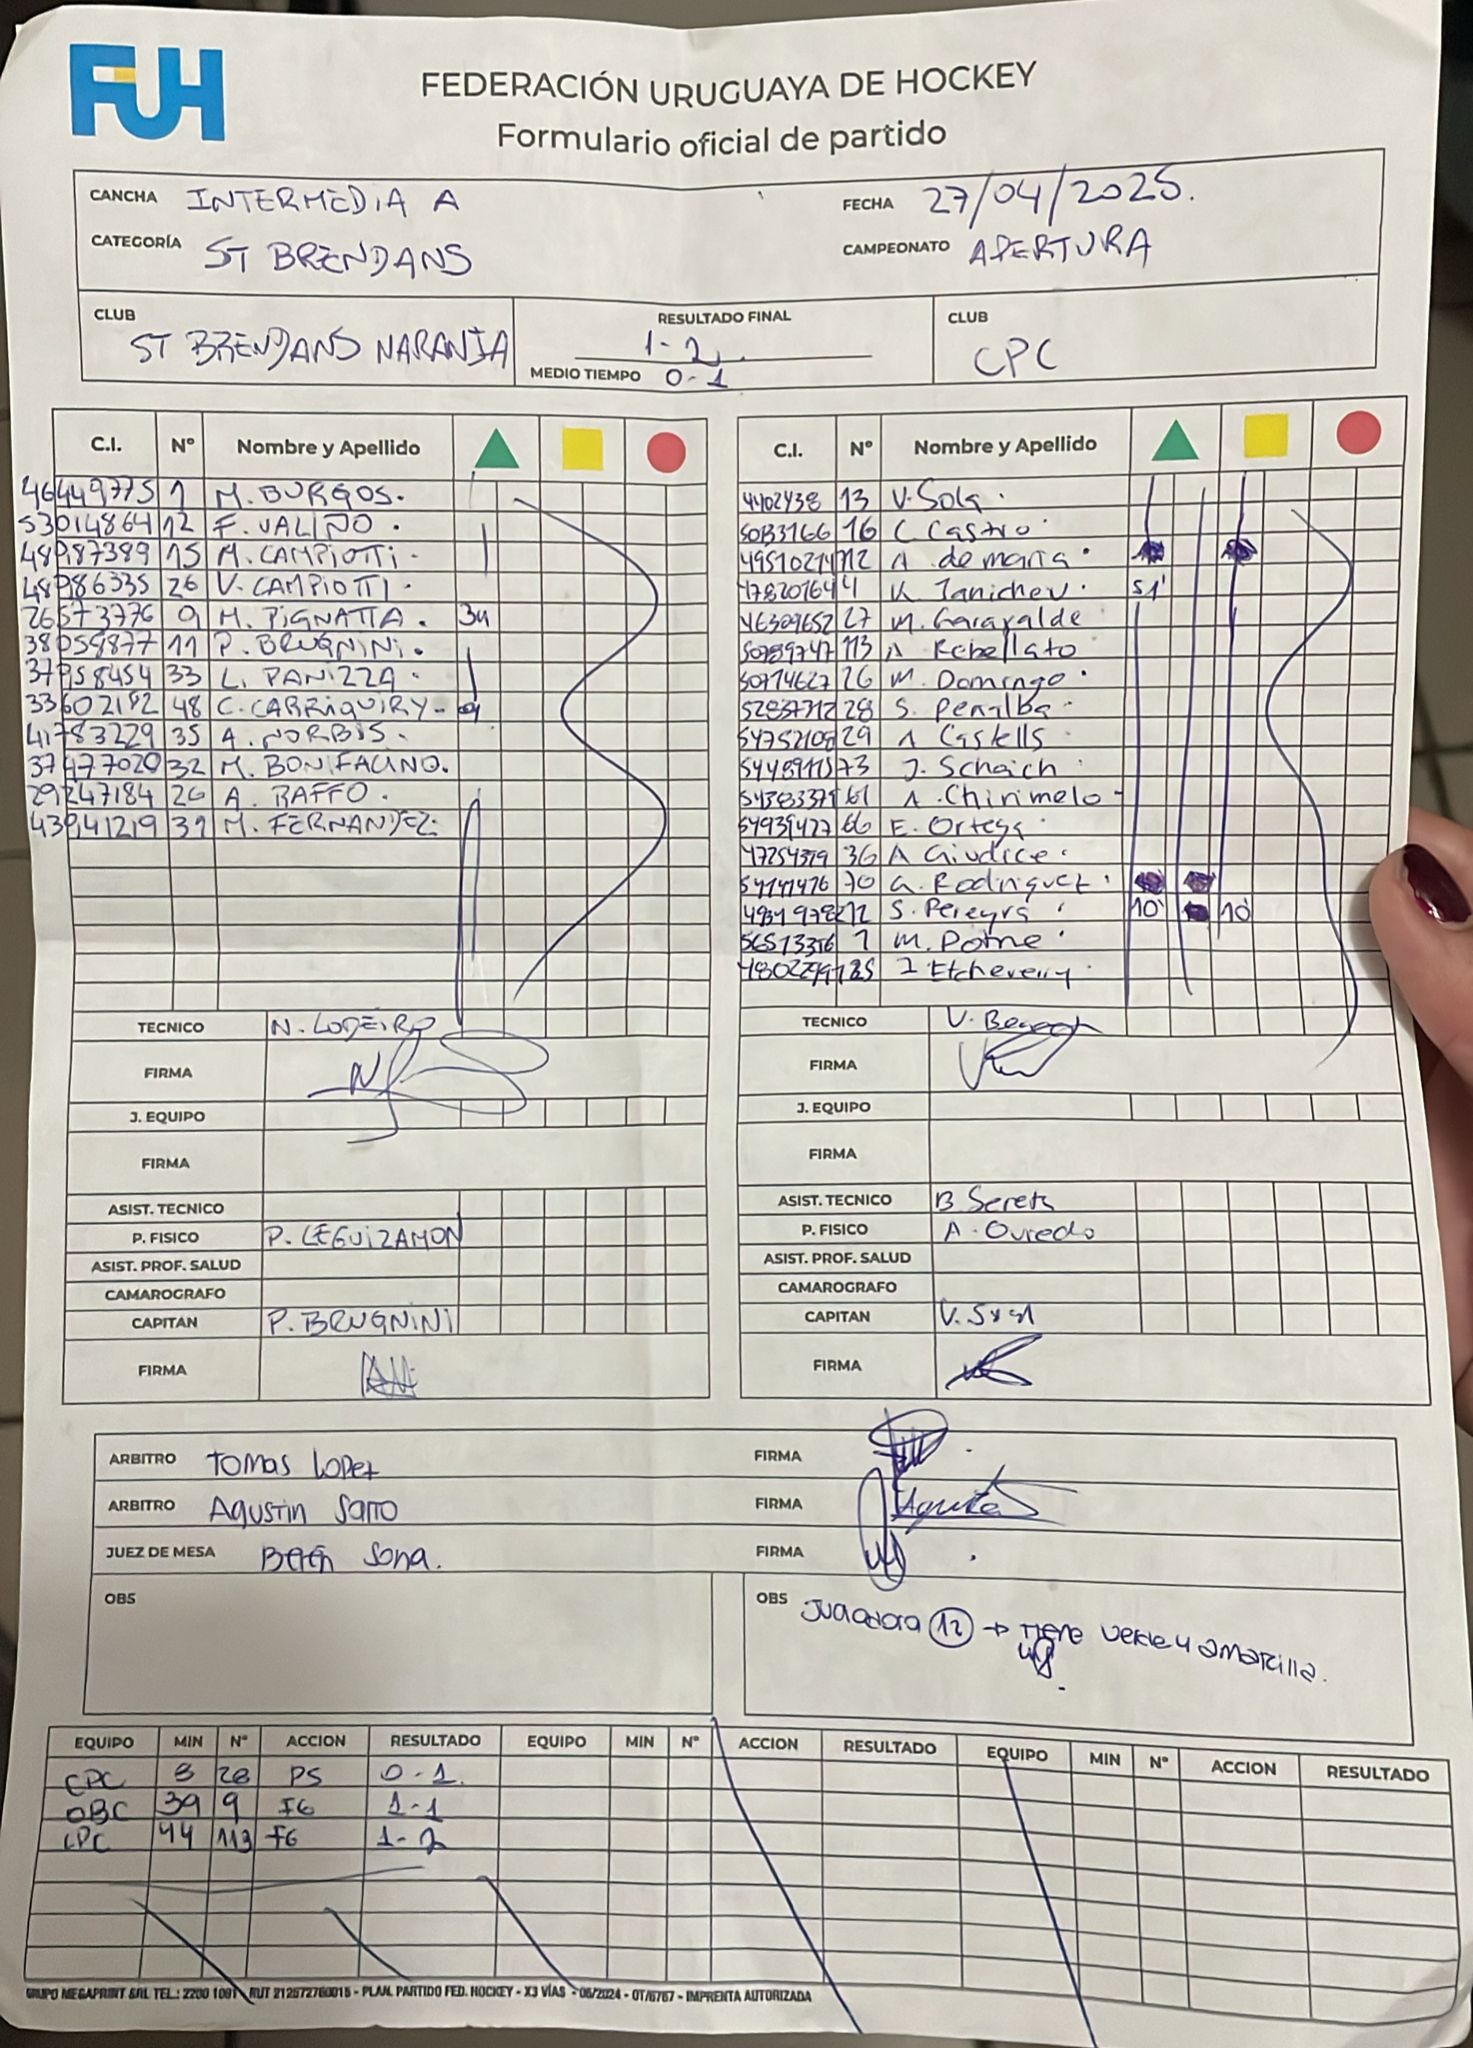 FUH
FEDERACIÓN URUGUAYA DE HOCKEY
Formulario oficial de partido
CANCHA INTERMEDIA A FECHA 27/04/2025.
CATEGORÍA ST BRENDANS CAMPEONATO APERTURA
CLUB RESULTADO FINAL CLUB
ST BRENDANS NARANJA 1-2 CPC
MEDIO TIEMPO 0-1
C.I. Nº Nombre y Apellido
46449775 1 M. BURGOS.
53014864 12 F. VALIÑO.
48987389 15 M. CAMPIOTTI.
48986335 26 V. CAMPIOTTI.
26573776 9 M. PIGNATTA. 34
38059877 11 P. BRUGNINI.
37958454 33 L. PANIZZA.
33602182 48 C. CARRIQUIRY.
41783229 35 A. NORBIS.
37477020 32 M. BONIFACINO.
29247184 26 A. BAFFO.
43941219 31 M. FERNANDEZ.
TECNICO N. LODEIRO
FIRMA
J. EQUIPO
FIRMA
ASIST. TECNICO
P. FISICO P. LEGUIZAMON
ASIST. PROF. SALUD
CAMAROGRAFO
CAPITAN P. BRUGNINI
FIRMA
C.I. Nº Nombre y Apellido
4402438 13 V. Sola.
16 C. Castro
12 A. de maria.
4 K. Janichev. 51'
46309652 27 M. Garavalde
50789747 113 A. Rebellato
50774627 26 M. Domingo.
52857712 28 S. Penalba.
54752108 29 A Castells
73 J. Schaich.
61 A. Chirimelo
54939427 66 E. Ortega.
36 A Giudice.
54141476 70 G. Rodriguez.
S. Pereyra 10' 10'
1 M. Potne
I Etcheverry.
TECNICO V.
FIRMA
J. EQUIPO
FIRMA
ASIST. TECNICO B
P. FISICO A. Ovredo
ASIST. PROF. SALUD
CAMAROGRAFO
CAPITAN V.
FIRMA
ARBITRO Tomas Lopez FIRMA
ARBITRO Agustin Satto FIRMA
JUEZ DE MESA Belén Sona. FIRMA
OBS
OBS Jugadora 12 → Tiene verde y amarilla.
EQUIPO MIN Nº ACCION RESULTADO EQUIPO MIN Nº ACCION RESULTADO EQUIPO MIN Nº ACCION RESULTADO
CPC 8 28 PS 0-1.
OBC 39 9 FG 1-1
CPC 44 113 FG 1-2
GRUPO MEGAPRINT SRL TEL.: 2200 1091 - RUT 212572760015 - PLAN. PARTIDO FED. HOCKEY - X3 VÍAS - 06/2024 - OT/6767 - IMPRENTA AUTORIZADA